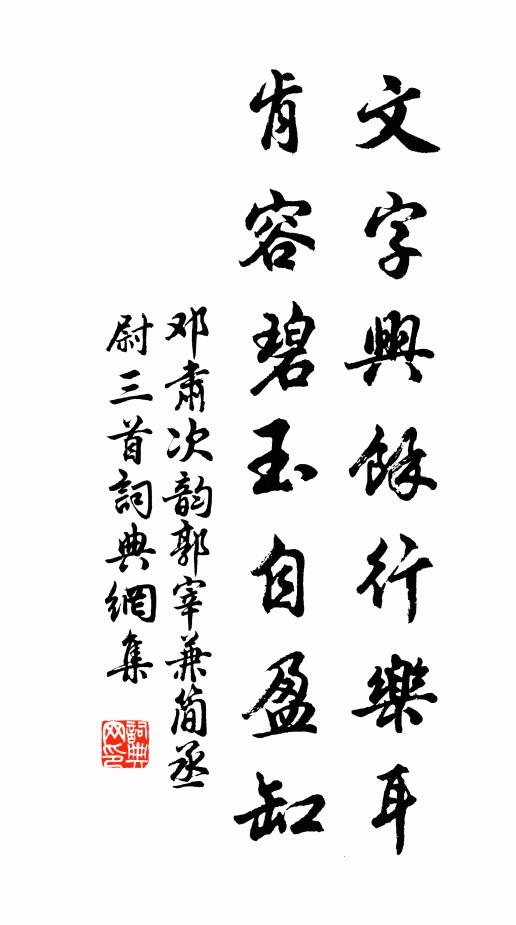 文字興餘行樂耳
肯容碧玉自盈缸
邓肅次韵郭宰兼簡丞
尉三首詞典網集
詞典
网印